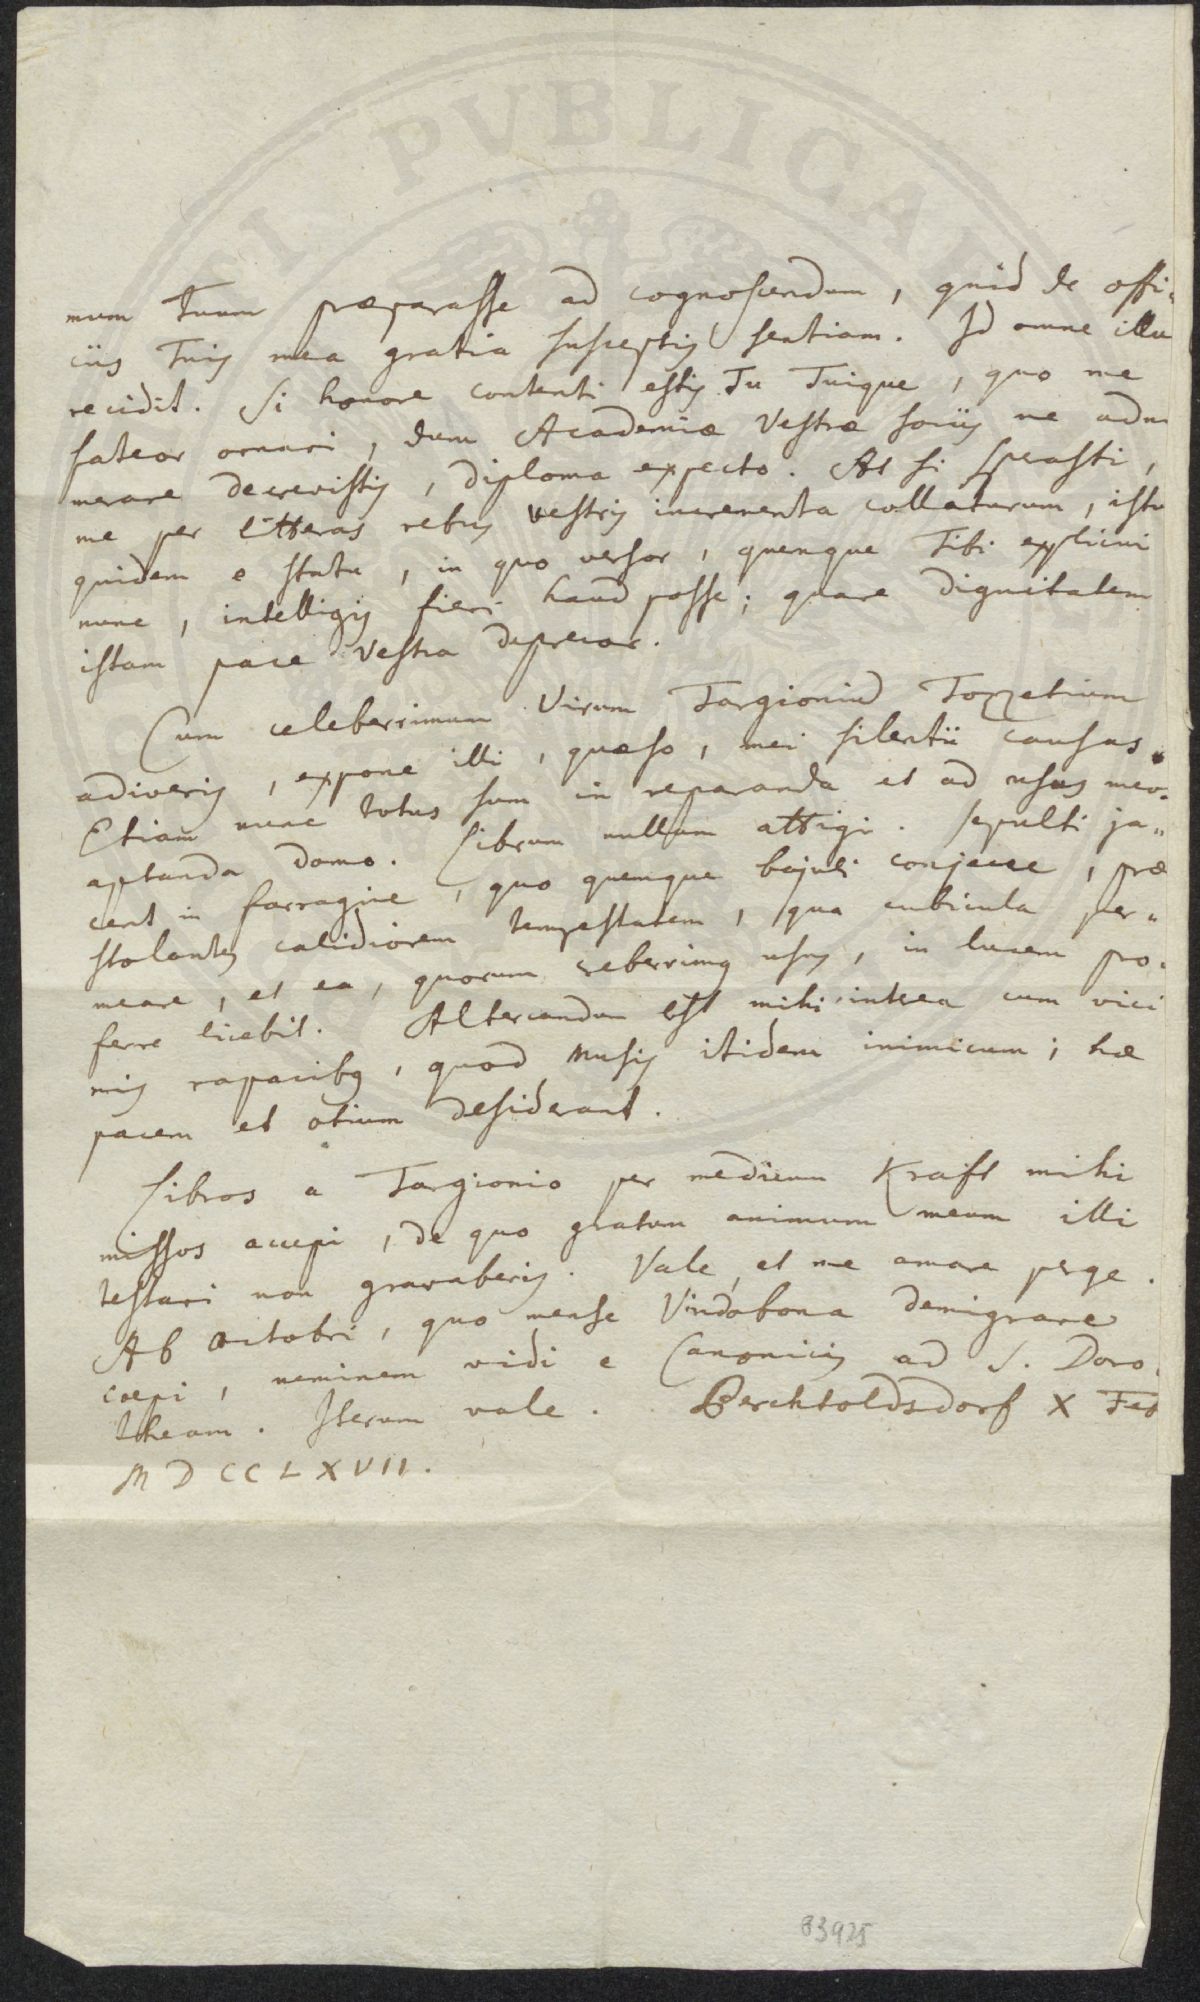 mum Tuum præparasse ad cognoscendum, quid de offi-
ciis Tuis mea gratia susceptis sentiam. Id omne illu
recidit. Si honore contenti estis Tu Tuique, quo me
fateor ornari, dum Academiæ Vestræ sociis me adnu
merare decrevistis, diploma expecto. At si sperasti,
me per litteras rebus vestris incrementa collaturum, istu
quidem e statu, in quo versor, quemque Tibi explicui
nunc, intelligis fieri haud posse; quare dignitatem
istam pace Vestra deprecor.
Cum celeberrimum Virum Targionium Tozzetium
adiveris, expone illi, quæso, mei silentii causas.
Etiam nunc totus sum in reparanda et ad usus meo-
aptanda domo. Librum nullum attigi. Sepulti ja-
cent in farragine, quo quemque bajuli conjecere, præ
stolantes calidiorem tempestatem, qua cubicula per-
meare, et ea, quorum creberrimus usus, in lucem pro-
ferre licebit. Altercandum est mihi interea cum vici
nis rapacibus, quod Musis itidem inimicum; hæ
pacem et otium desiderant.
Libros a Targionio per medicum Kraft mihi
missos accepi, de quo gratum animum meum illi
testari non gravaberis. Vale, et me amare perge.
Ab Octobri, quo mense Vindobona demigrare
cœpi, neminem vidi e Canonicis ad S. Doro-
theam. Iterum vale. Berchtoldsdorf X Feb
MDCCLXVII.
83925
PVBLICAE